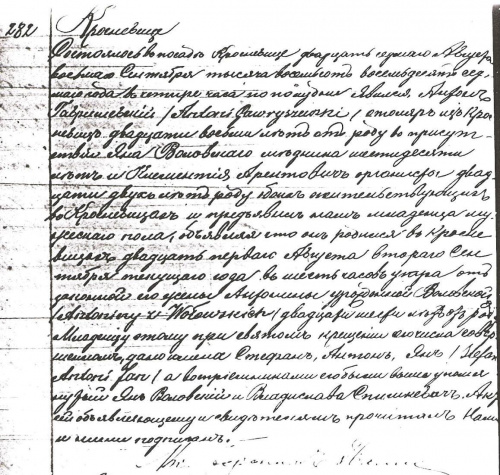 282
Кросневице
Состоялось въ посадѣ Кросневице двадцать седьмаго Августа
восьмаго Сентября тысяча восемьсотъ восемьдесятъ седь-
маго года въ четыре часа по полудни. Явился Антонъ
Гавришевскій /Antoni Gawryszewski/ столяръ изъ Кро-
невицъ двадцати восьми лѣтъ отъ роду въ присут-
ствіи Яна Воловскаго мѣдника шестидесяти
лѣтъ и организты двад-
цати двухъ лѣтъ отъ роду обоихъ жительствующихъ
въ Кросневицахъ и предъявилъ намъ младенца му-
жескаго пола, объявляя что онъ родился въ Кросне-
вицахъ двадцать перваго Августа втораго Сен-
тября текущаго года въ шесть часовъ утра отъ
законной его жены Антонины урожденной Воловской
/Antoniny z Wołowskich/ двадцати шести лѣтъ отъ роду
Младенцу этому при святомъ крещеніи совер-
шенномъ дано имена Стефанъ, Антонъ, Янъ /Stefan
Antoni Jan/ а воспріемниками его были вышеупомя-
нутый Янъ Воловскій и Владислава Актъ
сей объявляющему и свидѣтелямъ прочитанъ Нами
и ними подписанъ.